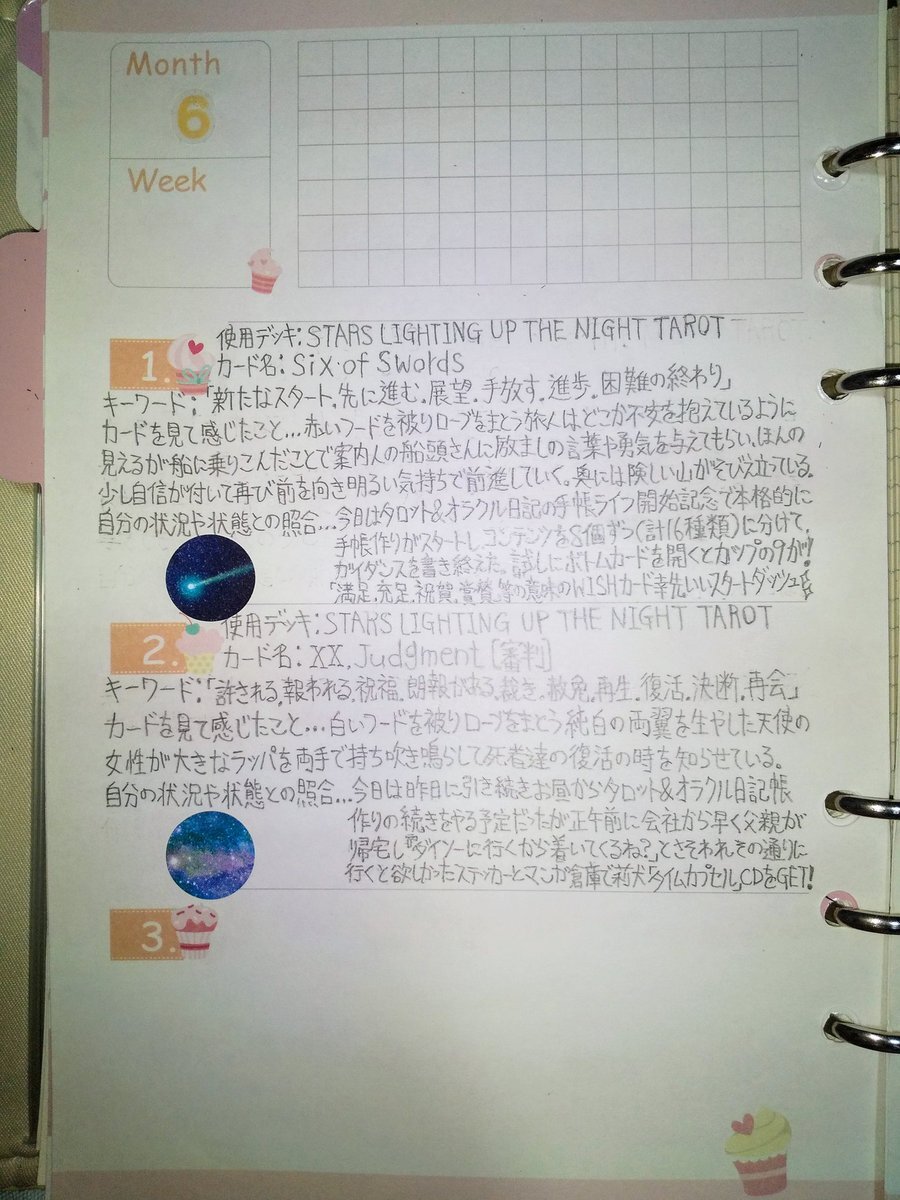 Month
6
Week
1.
使用デッキ:STARS LIGHTING UP THE NIGHT TAROT
カード名:Six of Swords
キーワード:「新たなスタート.先に進む.展望.手放す.進歩.困難の終わり」
カードを見て感じたこと…赤いフードを被りローブをまとう旅人はどこか不安を抱えているように
見えるが船に乗りこんだことで案内人の船頭さんに励ましの言葉や勇気を与えてもらい、ほんの
少し自信が付いて再び前を向き明るい気持ちで前進していく。奥には険しい山がそびえ立っている。
自分の状況や状態との照合…今日はタロット&オラクル日記の手帳ライフ開始記念で本格的に
手帳作りがスタートし、コンテンツを8個ずつ(計16種類)に分けて、
ガイダンスを書き終えた。試しにボトムカードを開くとカップの9が!
「満足.充足.祝賀.賞賛.等の意味のWISHカード幸先いいスタートダッシュ
2.
使用デッキ:STARS LIGHTING UP THE NIGHT TAROT
カード名:XX.Judgment[審判]
キーワード:「許される.報われる.祝福.朗報がある.裁き.赦免.再生.復活.決断.再会」
カードを見て感じたこと…白いフードを被りローブをまとう純白の両翼を生やした天使の
女性が大きなラッパを両手で持ち吹き鳴らして死者達の復活の時を知らせている。
自分の状況や状態との照合…今日は昨日に引き続きお昼からタロット&オラクル日記帳
作りの続きをやる予定だったが正午前に会社から早く父親が
帰宅し「ダイソーに行くから着いてくるね?」とさそわれその通りに
行くと欲しかったステッカーとマンガ倉庫で莉犬「タイムカプセル」CDをGET!
3.